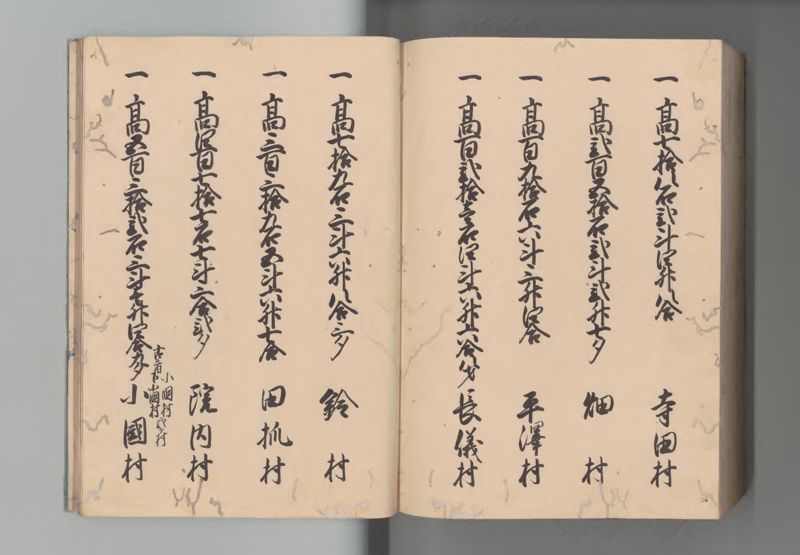 一 高七拾八石弐斗四升八合 寺田村
一 高弐百五拾石弐斗弐升七夕 畑村
一 高百九拾石六斗三升四合 平澤村
一 高百弐拾壱石四斗六升六合 長儀村
一 高七拾九石三斗六升八合三夕 鈴村
一 高三百三拾九石五斗六升七合 田抓村
一 高四百七拾七石七斗六合弐夕 院内村
一 高五百三拾弐石三斗七升四合 小國村
小國村